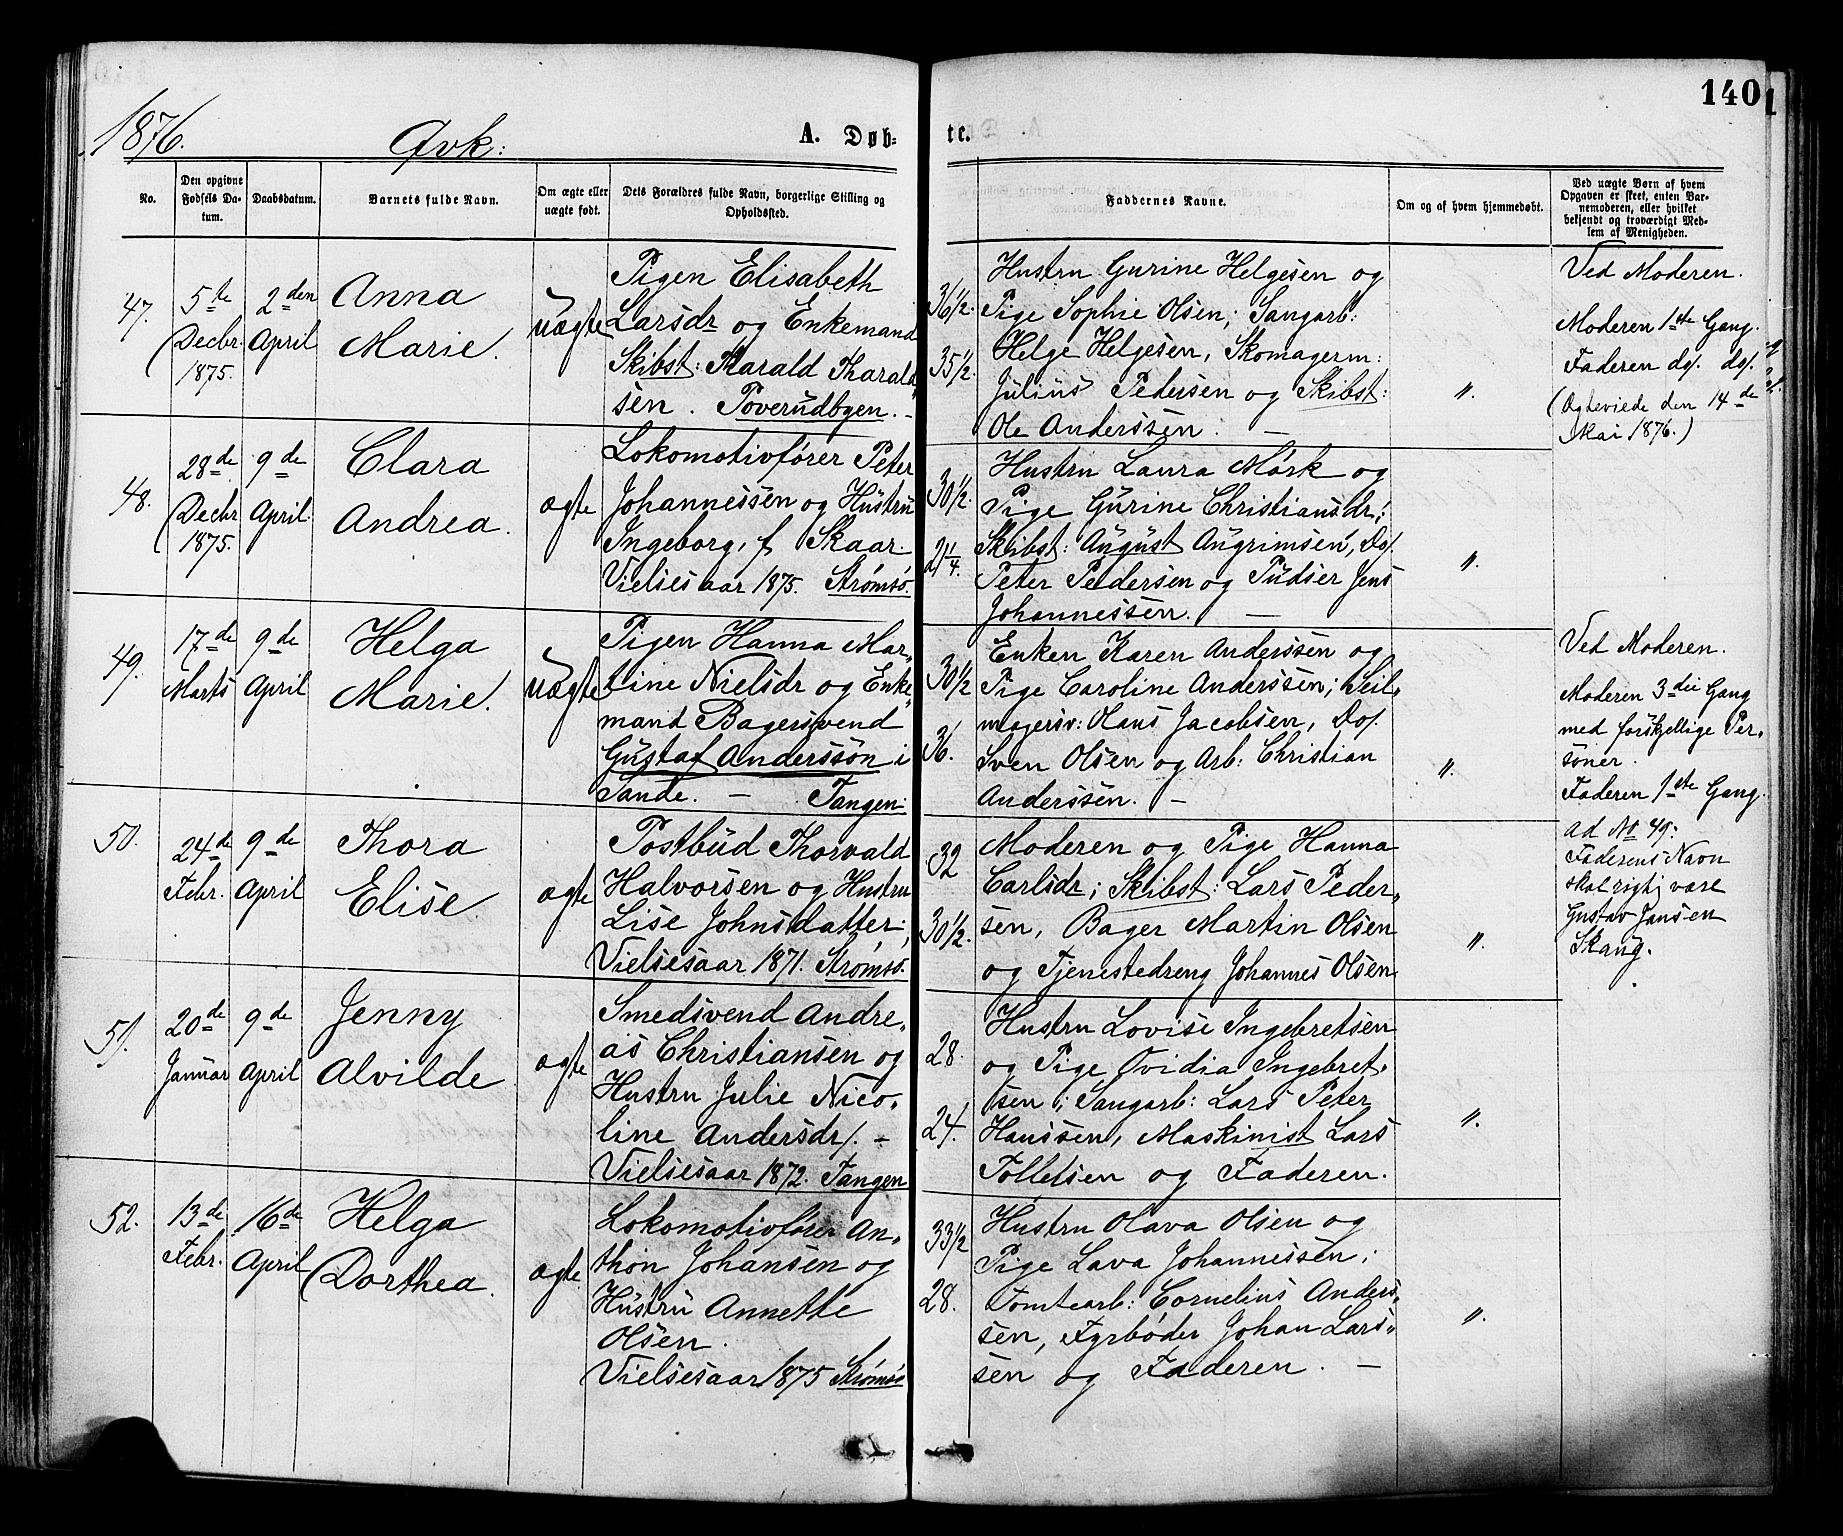 140
1876. Qvk: A. Døb= te.
No.
Den opgivne Fødsels Da-
tum.
Daabsdatum.
Barnets fulde Navn.
Om ægte eller
uægte født.
Dets Forældres fulde Navn, borgerlige Stilling og
Opholdssted.
Faddernes Navne.
Om og af hvem hjemmedøbt.
Ved uægte Børn af hvem
Opgaven er skeet, enten Bar-
nemoderen, eller hvilket
bekjendt og troværdigt Med-
lem af Menigheden.
47.
5te
Decbr.
1875.
2den
April
Anna
Marie.
Uægte
Pigen Elisabeth
Larsdr og Enkemand
Skibst: Tharald Tharald„
sen. Poverudbyen. –
36 1/2.
35 1/2.
Hustru Gurine Helgesen og
Pige Sophie Olsen; Saugarb:
Helge Helgesen, Skomagerm:
Julius Pedersen og Skibst:
Ole Anderssen. —
〃.
Ved Moderen.
Moderen 1ste Gang.
Faderen do/. do/.
(Ægteviede den 14de
Mai 1876.)
48.
28de
Decbr
1875.
9de
April.
Clara
Andrea.
ægte
Lokomotivfører Peter
Johannessen og Hustru
Ingeborg, f Skaar.
Vielsesaar 1875. Strømsø.
30 1/2.
21/4.
Hustru Laura Mørk og
Pige Gurine Christiansdr;
Skibst: August Augrimsen, Do/.
Peter Pedersen og Pudser Jens
Johannessen. —
〃.
49.
17de
Marts
9de
April
Helga
Marie.
Uægte
Pigen Hanna Mar„
tine Nielsdr og Enke„
mand Bagersvend
Gustaf Anderssøn i
Sande. – Tangen.
30 1/2
36.
Enken Karen Anderssen og
Pige Caroline Anderssen; Seil„
magersv: Hans Jacobsen, Do/.
Sven Olsen og Arb: Christian
Anderssen. –
〃.
Ved Moderen.
Moderen 3die Gang
med forskjellige Per„
soner.
Faderen 1ste Gang.
ad No 49:
Faderens Navn
skal rigtig være
Gustav Jansen
Skaug.
50.
24de
Febr.
9de
April
Thora
Elise.
ægte
Postbud Thorvald
Halvorsen og Hustru
Lise Johnsdatter;
Vielsesaar 1871. Strømsø.
32
30 1/2.
Moderen og Pige Hanna
Carlsdr; Skibst: Lars Peder„
sen, Bager Martin Olsen
og Tjenestedreng Johannes Olsen.
〃.
51.
20de
Januar
9de
April
Jenny
Alvilde
ægte
Smedsvend Andre„
as Christiansen og
Hustru Julie Nico„
line Andersdr/. –
Vielsesaar 1872. Tangen
28.
24.
Hustru Lovise Ingebretsen
og Pige Ovidia Ingebret„
sen; Saugarb: Lars Peter
Hanssen, Maskinist Lars
Tolletsen og Faderen.
〃.
52.
13de
Febr.
16de
April
Helga
Dorthea.
ægte
Lokomotivfører An„
thon Johansen og
Hustru Annette
Olsen.
Vielsesaar 1875 Strømsø
33 1/2
28.
Hustru Olava Olsen og
Pige Lava Johannessen;
Tomtearb: Cornelius Anders„
sen, Fyrbøder Johan Lars„
sen og Faderen. —
〃.